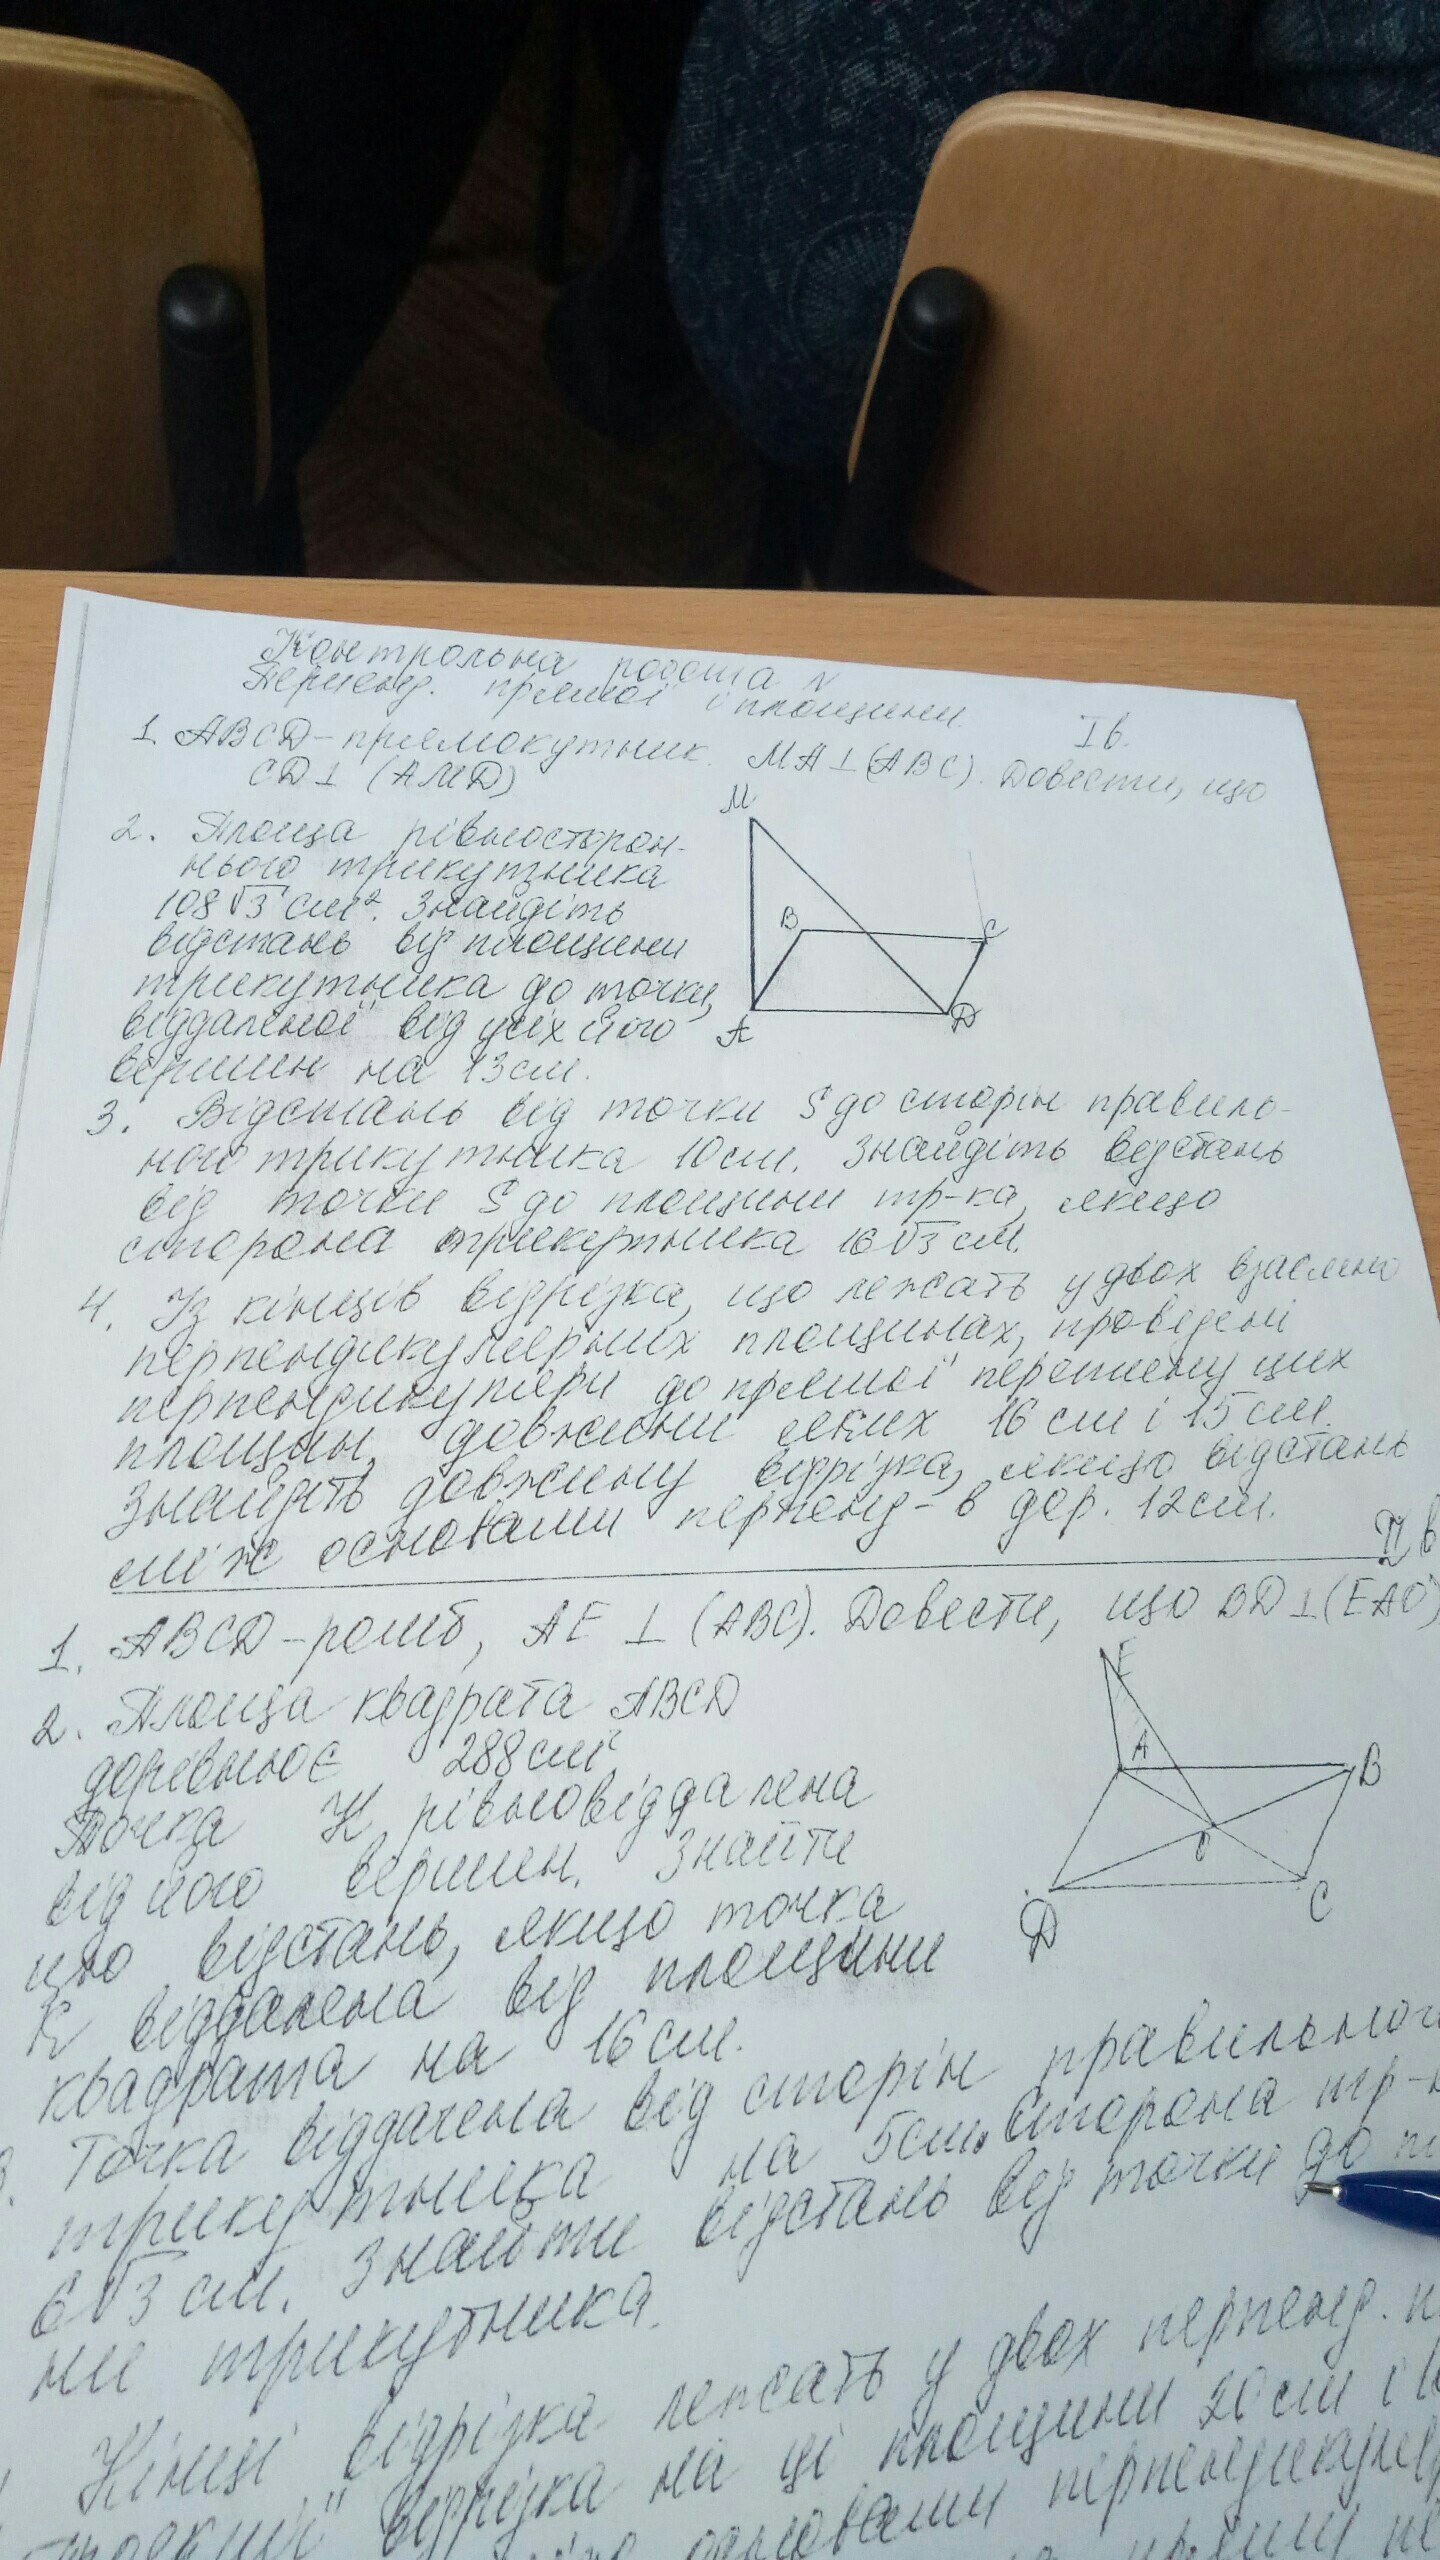 Контрольна робота N
Перпенд. прямої і площини.
І в.
1. ABCD – прямокутник. MA ⊥ (ABC). Довести, що
CD ⊥ (AMD)
M
B
C
A
D
2. Площа рівносторон-
нього трикутника
108√3 см². Знайдіть
відстань від площини
трикутника до точки,
віддаленої від усіх його
вершин на 13 см.
3. Відстань від точки S до сторін правиль-
ного трикутника 10 см. Знайдіть відстань
від точки S до площини тр-ка, якщо
сторона трикутника 16√3 см.
4. Із кінців відрізка, що лежать у двох взаємно
перпендикулярних площинах, проведені
перпендикуляри до прямої перетину цих
площин, довжини яких 16 см і 15 см.
Знайдіть довжину відрізка, якщо відстань
між основами перпенд-в дор. 12 см.
ІІ в
1. ABCD – ромб, AE ⊥ (ABC). Довести, що BD ⊥ (EAO)
E
A
B
O
D
C
2. Площа квадрата ABCD
дорівнює 288 см²
Точка К рівновіддалена
від його вершин. Знайти
цю відстань, якщо точка
К віддалена від площини
квадрата на 16 см.
3. Точка віддалена від сторін правильного
трикутника на 5 см. Сторона тр-
6√3 см. Знайти відстань від точки до
ни трикутника.
Кінці відрізка лежать у двох перпенд.
відрізка на ці площини 20 см і
основами